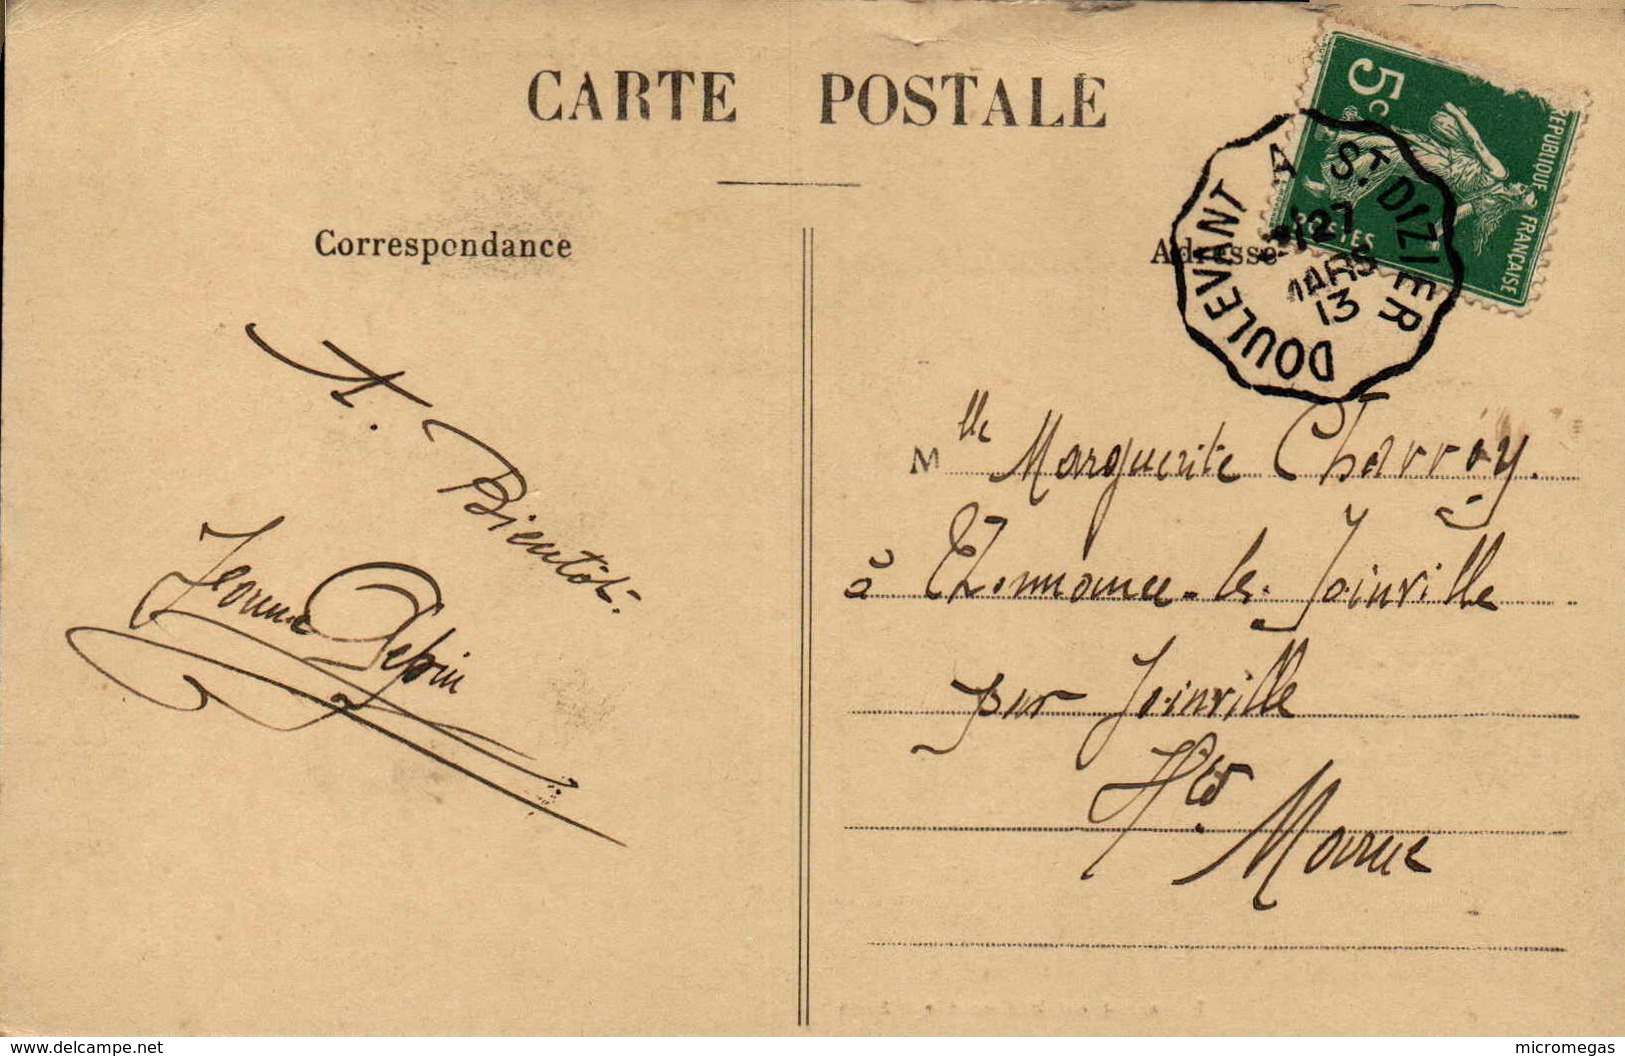 CARTE POSTALE
Correspondance
Adresse
5 c
REPUBLIQUE FRANÇAISE
POSTES
DOULEVANT A ST. DIZIER
27
MARS
13
A. Bientôt.
Jeanne Pepin
Mlle Marguerite Charroy.
à Thonnance-les-Joinville
par Joinville
Hte Marne
www.delcampe.net
micromegas